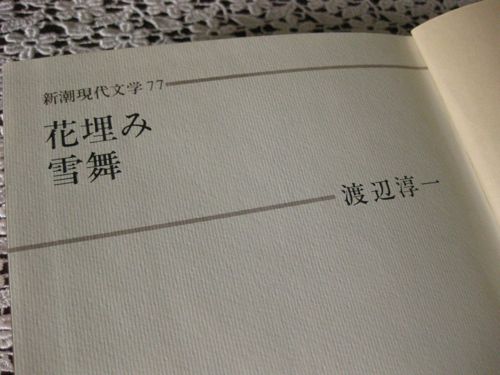 新潮現代文学77
花埋み
雪舞
渡辺淳一